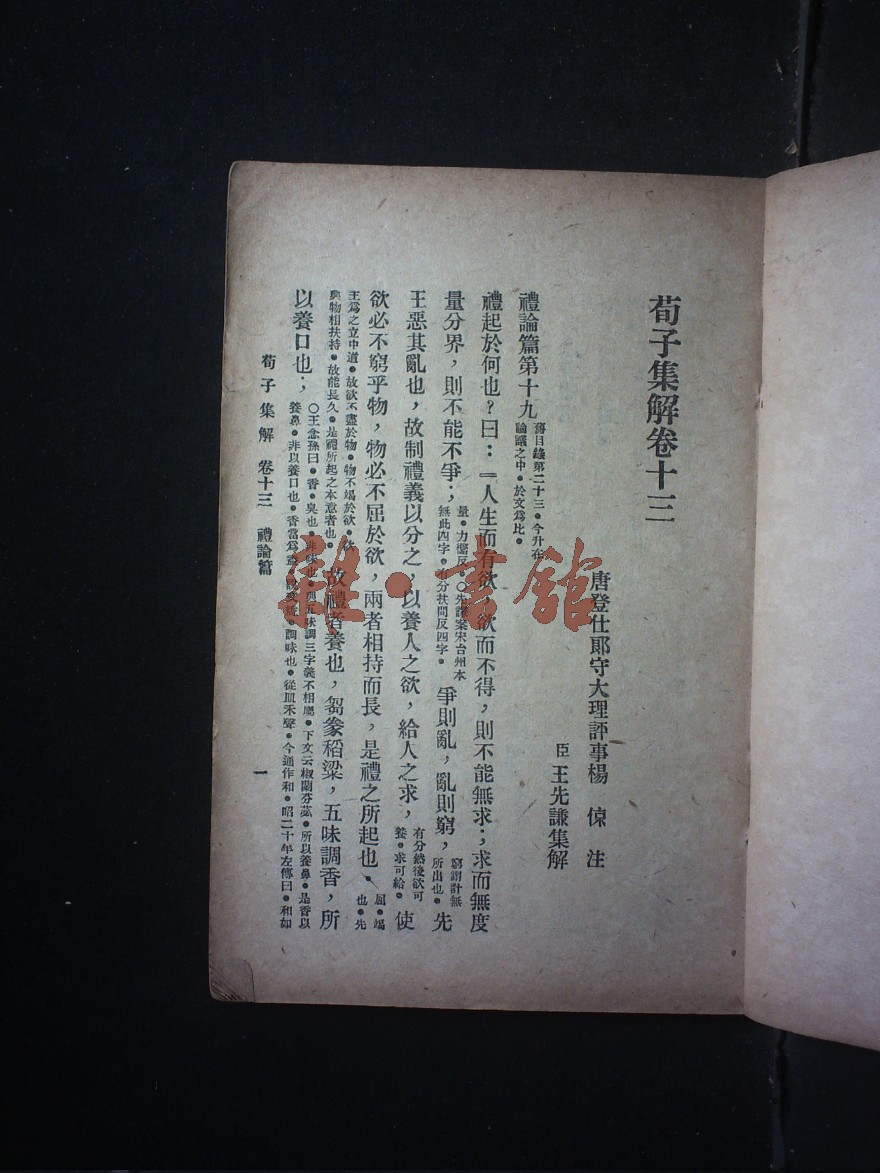 荀子集解卷十三
唐登仕郎守大理評事楊 倞 注
臣 王先謙集解
禮論篇第十九 舊目錄第二十三•今升在
論議之中•於文爲比•
禮起於何也?曰:『人生而有欲,欲而不得,則不能無求;求而無度
量分界,則不能不爭; 量•力嚮反•○先謙案宋台州本
無此四字•有分扶問反四字• 爭則亂,亂則窮, 窮謂計無
所出也• 先
王惡其亂也,故制禮義以分之,以養人之欲,給人之求, 有分然後欲可
養•求可給• 使
欲必不窮乎物,物必不屈於欲,兩者相持而長,是禮之所起也• 屈•竭
也•先
王爲之立中道•故欲不盡於物•物不竭於欲•欲
與物相扶持•故能長久•是禮所起之本意者也• 故禮者養也,芻豢稻粱,五味調香,所
以養口也; ○王念孫曰•香•臭也•非味也•與五味調三字義不相屬•下文云椒蘭芬苾•所以養鼻•是香以
養鼻•非以養口也•香當爲盉•說文盉•調味也•從皿禾聲•今通作和•昭二十年左傳曰•和如
荀子集解 卷十三 禮論篇 一
雜•書館